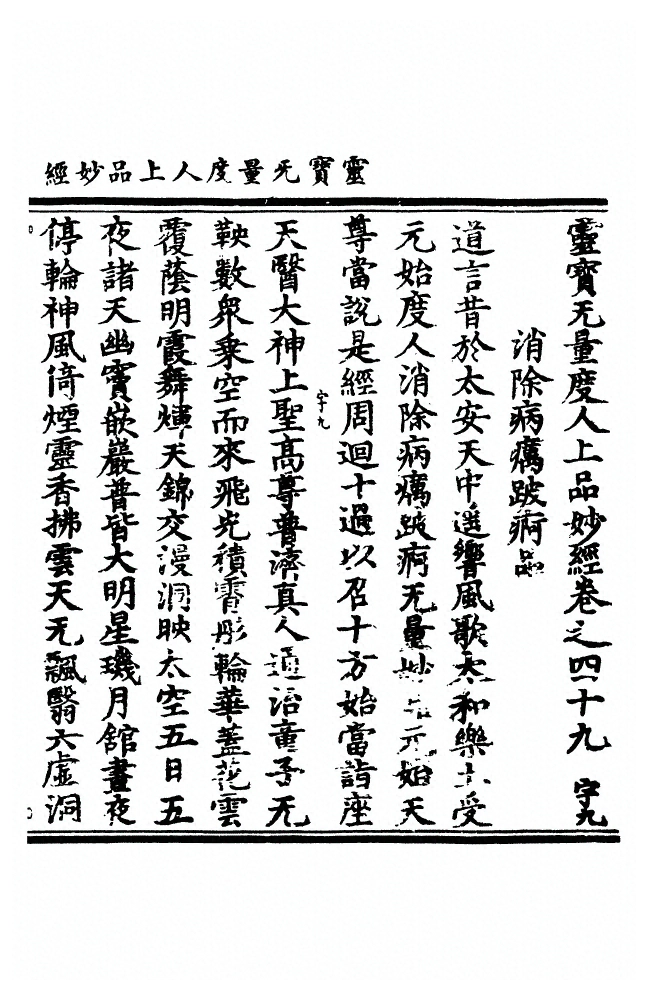 靈寶无量度人上品妙經
靈寶无量度人上品妙經卷之四十九 宇九
消除病癘跛痾品
道言昔於太安天中遥響風歌太和樂土受
元始度人消除病癘跛痾无量妙品元始天
尊當說是經周迴十過以召十方始當詣座
天醫大神上聖髙尊普濟真人通治童子无
宇九
鞅數衆乗空而來飛光積霄彤輪華蓋花雲
覆蔭明霞舞煇天錦交漫洞映太空五日五
夜諸天幽賓嵌巖普皆大明星璣月舘晝夜
停輪神風倚煙靈香拂雲天无飄翳六虛洞